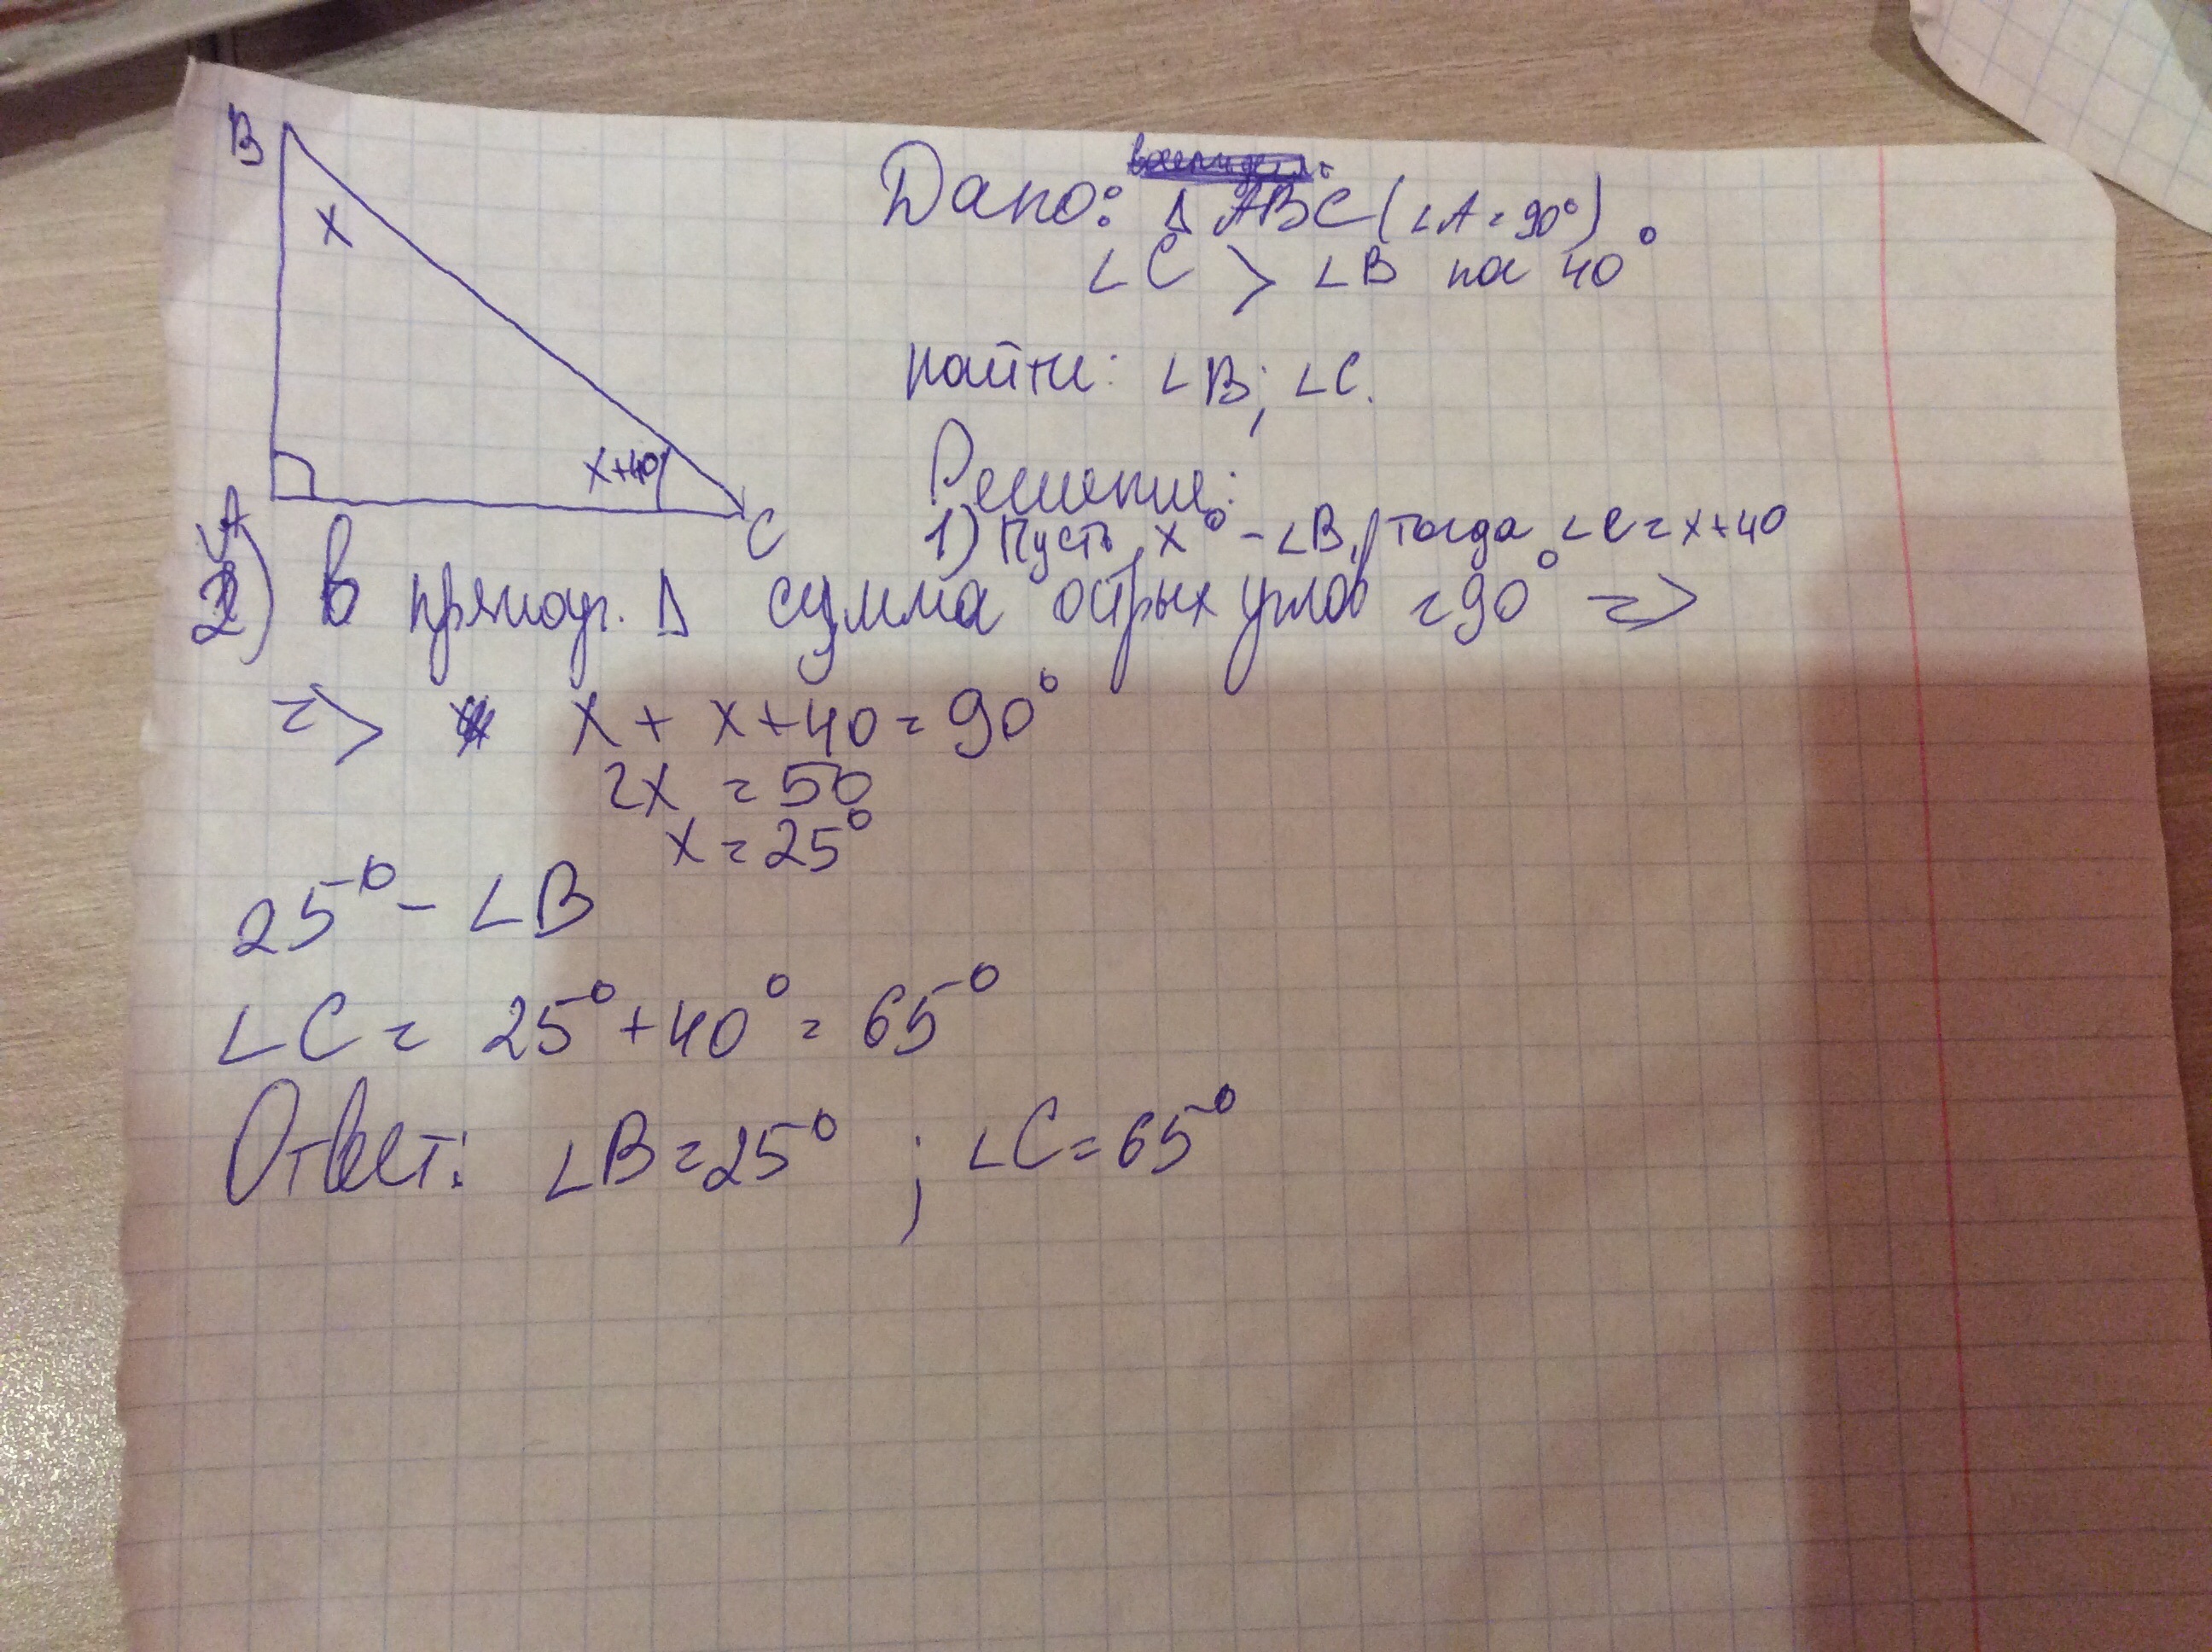 B
X
X+40
A
C
Дано: Δ ABC (∠A = 90°)
∠C > ∠B на 40°
найти: ∠B; ∠C.
Решение:
1) Пусть x° - ∠B, тогда ∠C = x+40
2) В прямоуг. Δ сумма острых углов = 90° =>
=> x + x+40 = 90°
2x = 50
x = 25°
25° - ∠B
∠C = 25° + 40° = 65°
Ответ: ∠B = 25° ; ∠C = 65°